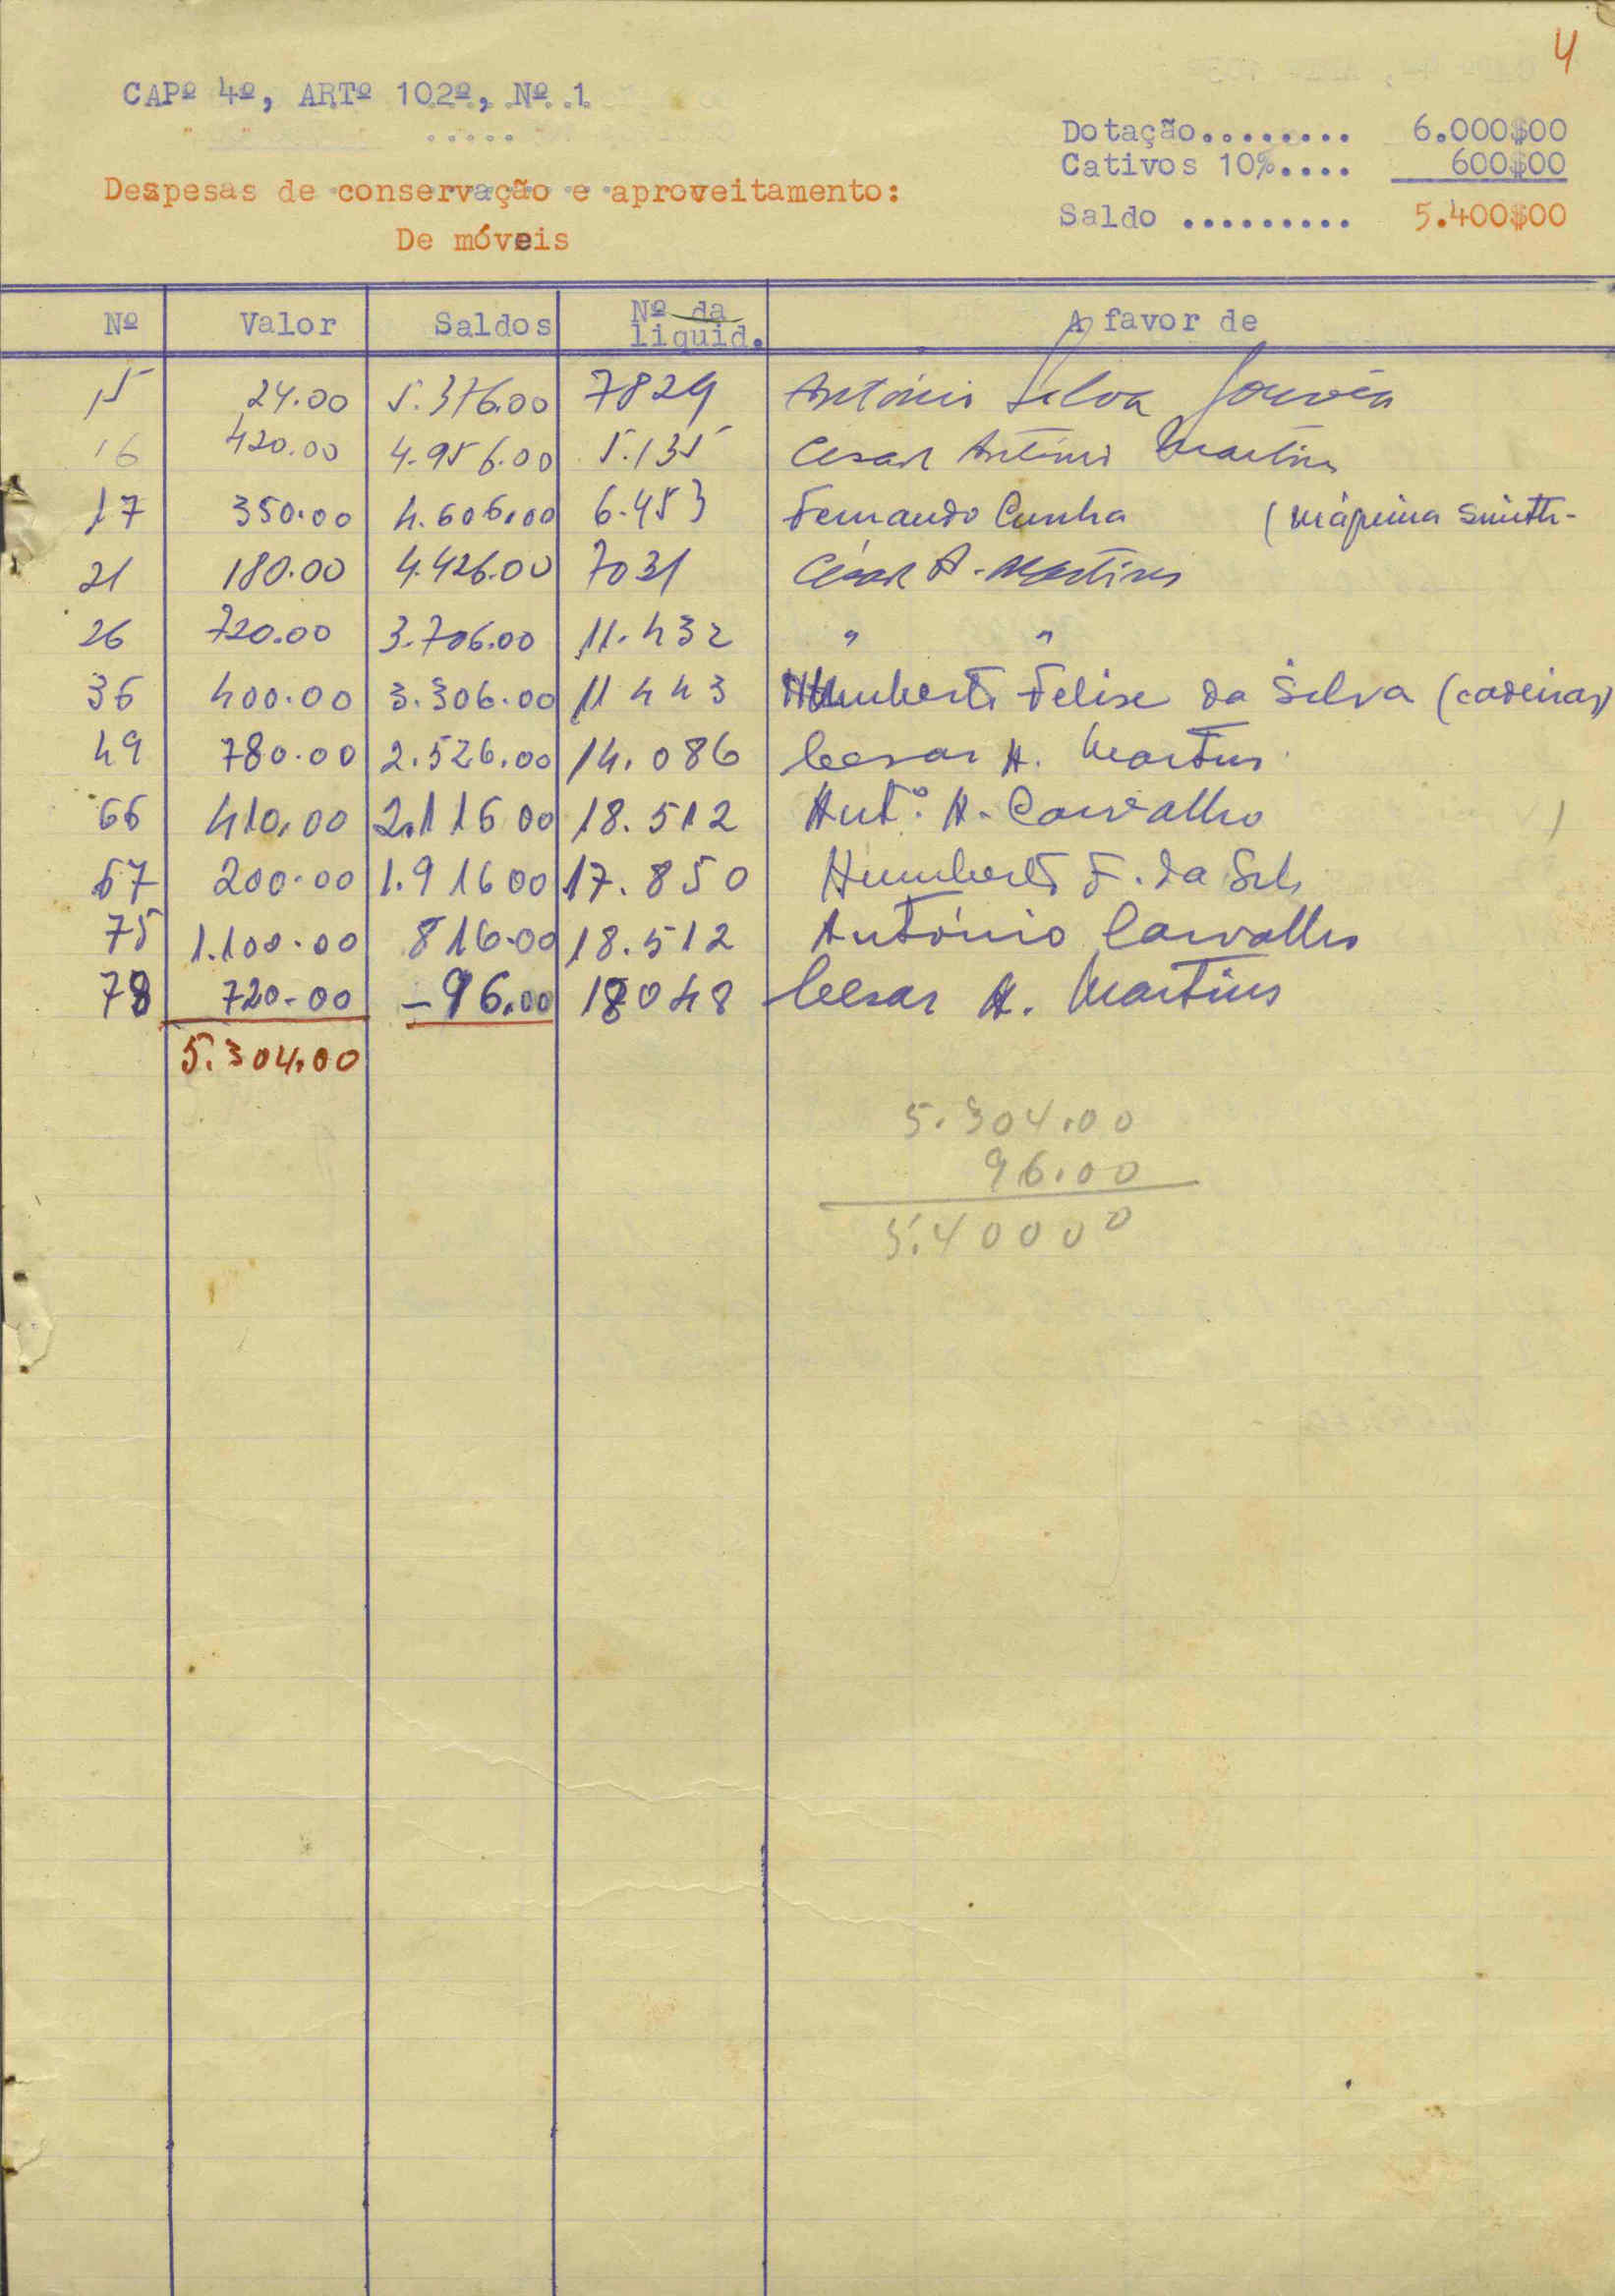 4
CAPº 4º, ARTº 102º, Nº 1
Dotação........ 6.000$00
Cativos 10%.... 600$00
Saldo ......... 5.400$00
Despesas de conservação e aproveitamento:
De móveis
Nº Valor Saldos Nº da liquid. A favor de
15 24.00 5.376.00 7829 António Silva Gouvêa
16 420.00 4.956.00 5.135 Cesar António Martins
17 350.00 4.606.00 6.453 Fernando Cunha (máquina Smith-
21 180.00 4.426.00 7031 César A. Martins
26 720.00 3.706.00 11.432 " "
36 400.00 3.306.00 11443 Humberto Felise da Silva (cadeiras)
49 780.00 2.526.00 14.086 Cesar A. Martins
66 410.00 2.116 00 18.512 Antº. A. Carvalho
67 200.00 1.916 00 17.850 Humberto F. da
75 1.100.00 816.00 18.512 António Carvalho
78 720.00 -96.00 18048 Cesar A. Martins
5.304.00
5.304.00
96.00
5.40000